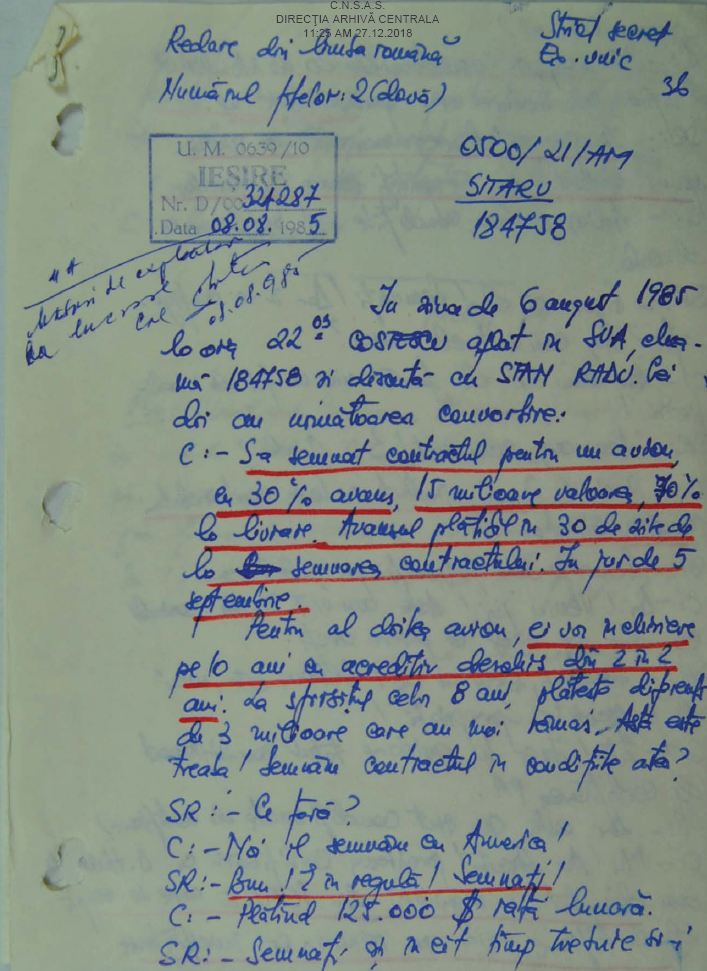 C.N.S.A.S.
DIRECŢIA ARHIVĂ CENTRALA
11:25 AM 27.12.2018
Redare din limba română
Strict secret
Ex. unic
Numărul filelor: 2 (două)
36
U. M. 0639/10
IEŞIRE
Nr. D/00 324287
Data 08.08. 1985
0500/21/AM
SITARU
184758
08.08.985
În ziua de 6 august 1985
la ora 22 03 COSTESCU aflat în SUA, chea-
mă 184758 și discută cu STAN RADU. Cei
doi au următoarea convorbire:
C: - S-a semnat contractul pentru un avion,
cu 30% avans, 15 milioane valoarea, 70%
la livrare. Avansul plătibil în 30 de zile de
la semnarea contractului. În jur de 5
septembrie.
Pentru al doilea avion, ei vor închiriere
pe 10 ani cu acreditiv deschis din 2 în 2
ani. La sfîrșitul celor 8 ani, plătește diferența
de 3 milioane care au mai rămas. Asta este
treaba! Semnăm contractul în condițiile astea?
SR: - Ce țară?
C: - Noi îl semnăm cu America!
SR: - Bun! E în regulă! Semnați!
C: - Plătind 125.000 $ rată lunară.
SR: - Semnați și în cît timp trebuie să-i